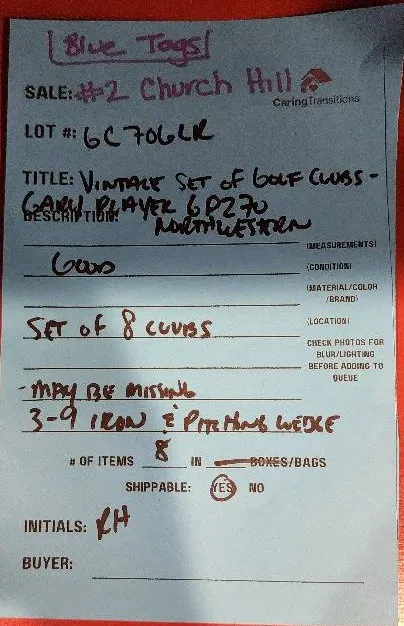 Blue Tags
SALE: #2 Church Hill
CaringTransitions
LOT #: 6C706LR
TITLE: VINTAGE SET OF GOLF CLUBS -
GARY PLAYER GP270
DESCRIPTION:
NORTHWESTERN
(MEASUREMENTS)
GOOD (CONDITION)
(MATERIAL/COLOR
/BRAND)
SET OF 8 CLUBS (LOCATION)
CHECK PHOTOS FOR
BLUR/LIGHTING
BEFORE ADDING TO
QUEUE
- MAY BE MISSING
3-9 IRON & PITCHING WEDGE
# OF ITEMS 8 IN BOXES/BAGS
SHIPPABLE: YES NO
INITIALS: RH
BUYER: